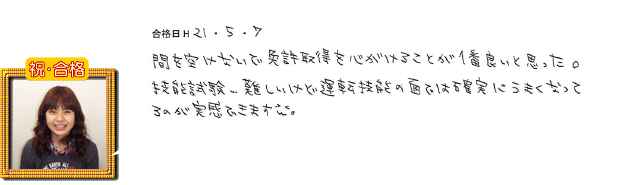 合格日H21・5・7
間を空けないで免許取得を心がけることが1番良いと思った。
祝・合格
技能試験は難しいけど運転技能の面では確実にうまくなって
るのが実感できますよ。